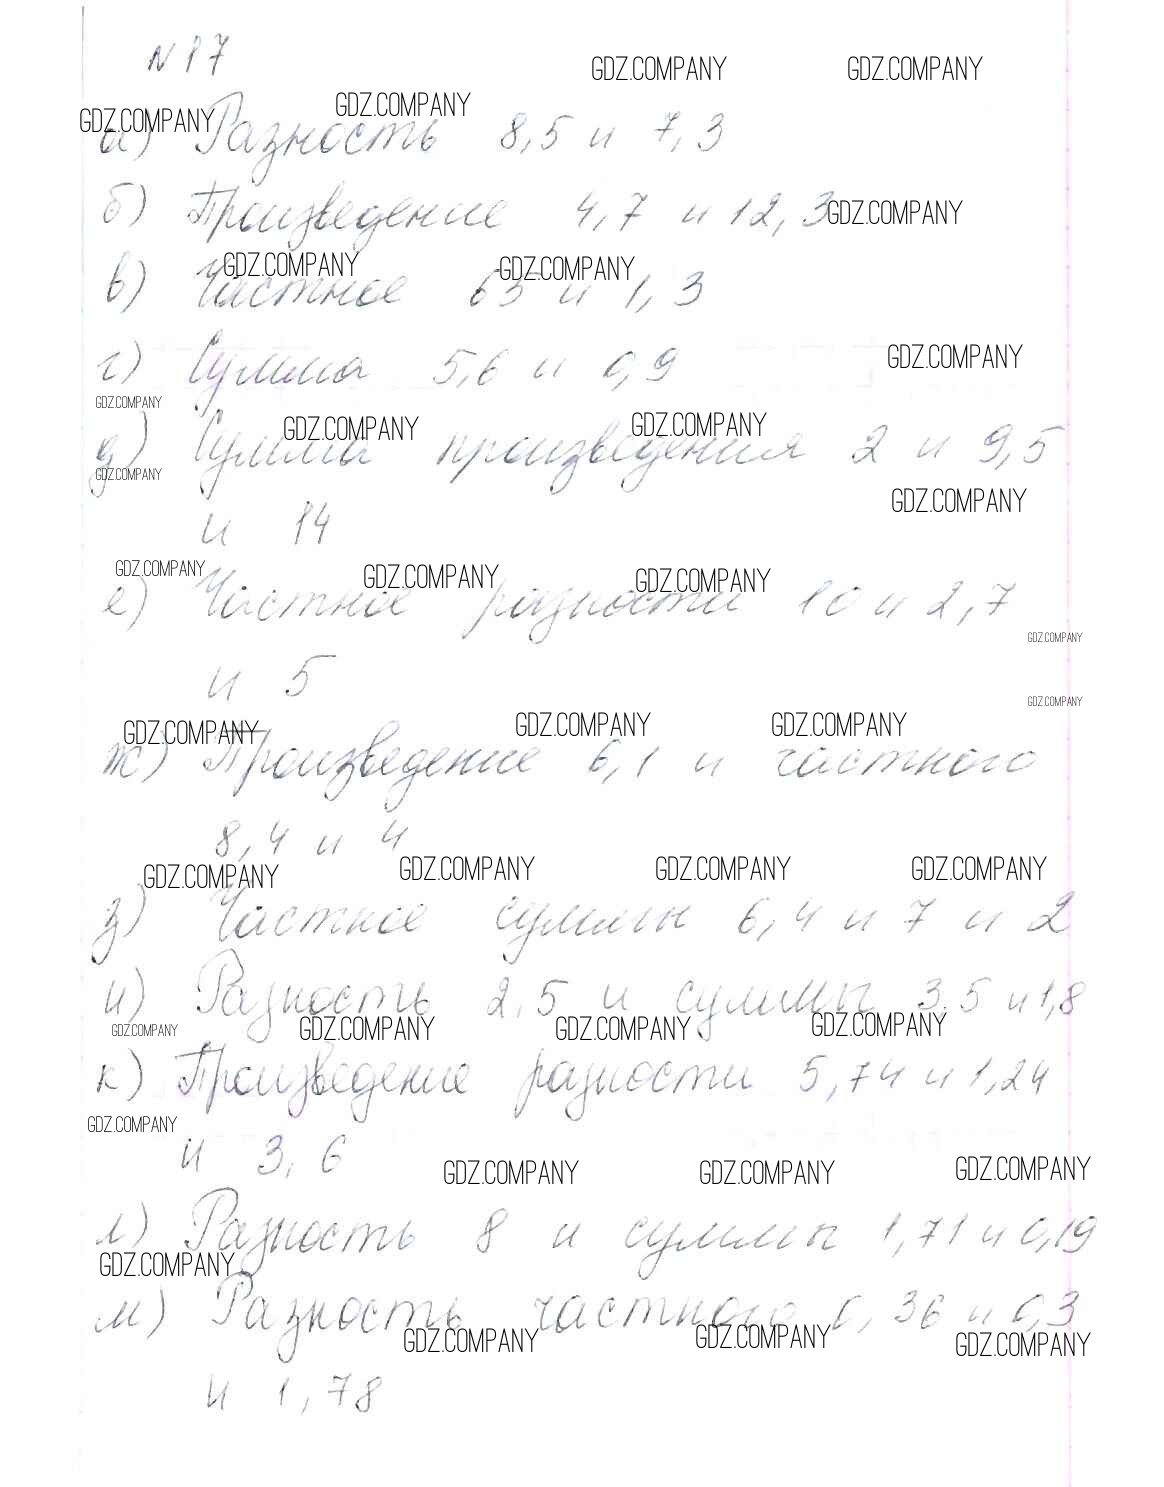 N 87
GDZ.COMPANY GDZ.COMPANY
GDZ.COMPANY GDZ.COMPANY
а) Разность 8,5 и 7,3
б) Произведение 4,7 и 12,3 GDZ.COMPANY
GDZ.COMPANY GDZ.COMPANY
в) Частное 65 и 1,3
г) Сумма 5,6 и 0,9 GDZ.COMPANY
GDZ.COMPANY GDZ.COMPANY GDZ.COMPANY
д) Сумма произведения 2 и 9,5
GDZ.COMPANY GDZ.COMPANY
и 14
GDZ.COMPANY GDZ.COMPANY GDZ.COMPANY
е) Частное разности 10 и 2,7
GDZ.COMPANY
и 5
GDZ.COMPANY
GDZ.COMPANY GDZ.COMPANY GDZ.COMPANY
ж) Произведение 6,1 и частного
8,4 и 4
GDZ.COMPANY GDZ.COMPANY GDZ.COMPANY GDZ.COMPANY
з) Частное суммы 6,4 и 7 и 2
и) Разность 2,5 и суммы 3,5 и 1,8
GDZ.COMPANY GDZ.COMPANY GDZ.COMPANY GDZ.COMPANY
к) Произведение разности 5,74 и 1,24
GDZ.COMPANY
и 3,6
GDZ.COMPANY GDZ.COMPANY GDZ.COMPANY
л) Разность 8 и суммы 1,71 и 0,19
GDZ.COMPANY
м) Разность частного 0,36 и 0,3
GDZ.COMPANY GDZ.COMPANY GDZ.COMPANY
и 1,78